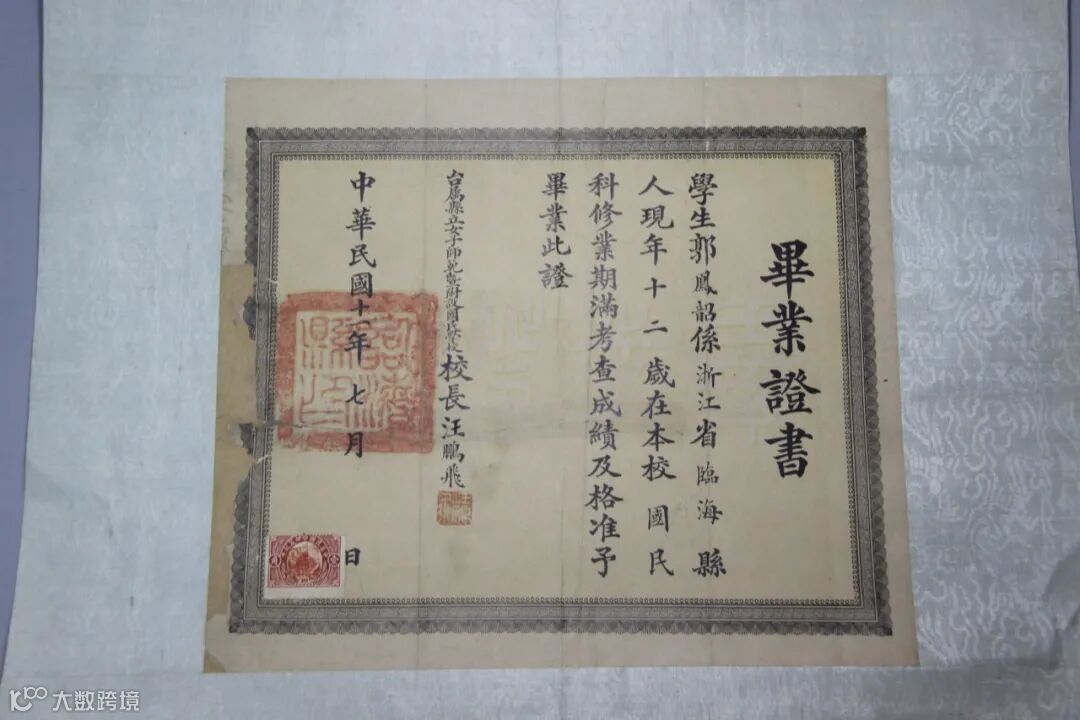 畢業證書
學生郭鳳韶係浙江省臨海縣
人現年十二歲在本校國民
科修業期滿考查成績及格准予
畢業此證
台屬縣立女子師範學校附設國民學校校長汪鵬飛
中華民國十一年七月 日
臨海縣印
大数跨境